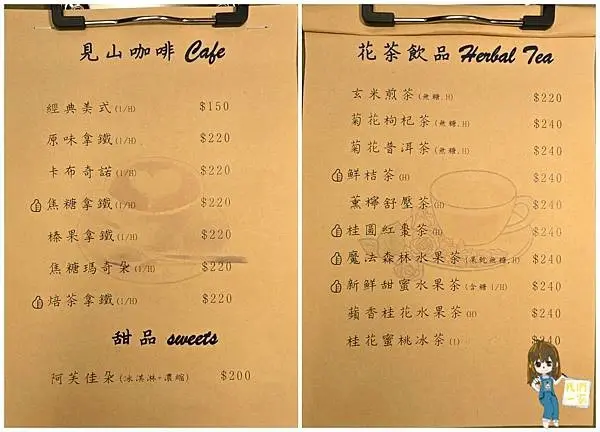 見山咖啡 Cafe
經典美式(I/H) $150
原味拿鐵(I/H) $220
卡布奇諾(I/H) $220
焦糖拿鐵(I/H) $220
榛果拿鐵(I/H) $220
焦糖瑪奇朵(I/H) $220
焙茶拿鐵(I/H) $220
甜品 sweets
阿芙佳朵(冰淇淋+濃縮) $200
花茶飲品 Herbal Tea
玄米煎茶(無糖.H) $220
菊花枸杞茶(無糖.H) $240
菊花普洱茶(無糖.H) $240
鮮桔茶(H) $240
薰檸舒壓茶(H) $240
桂圓紅棗茶(H) $240
魔法森林水果茶(果乾無糖.H) $240
新鮮甜蜜水果茶(含糖 I/H) $240
蘋香桂花水果茶(H) $240
桂花蜜桃冰茶(I) $240
我們一家